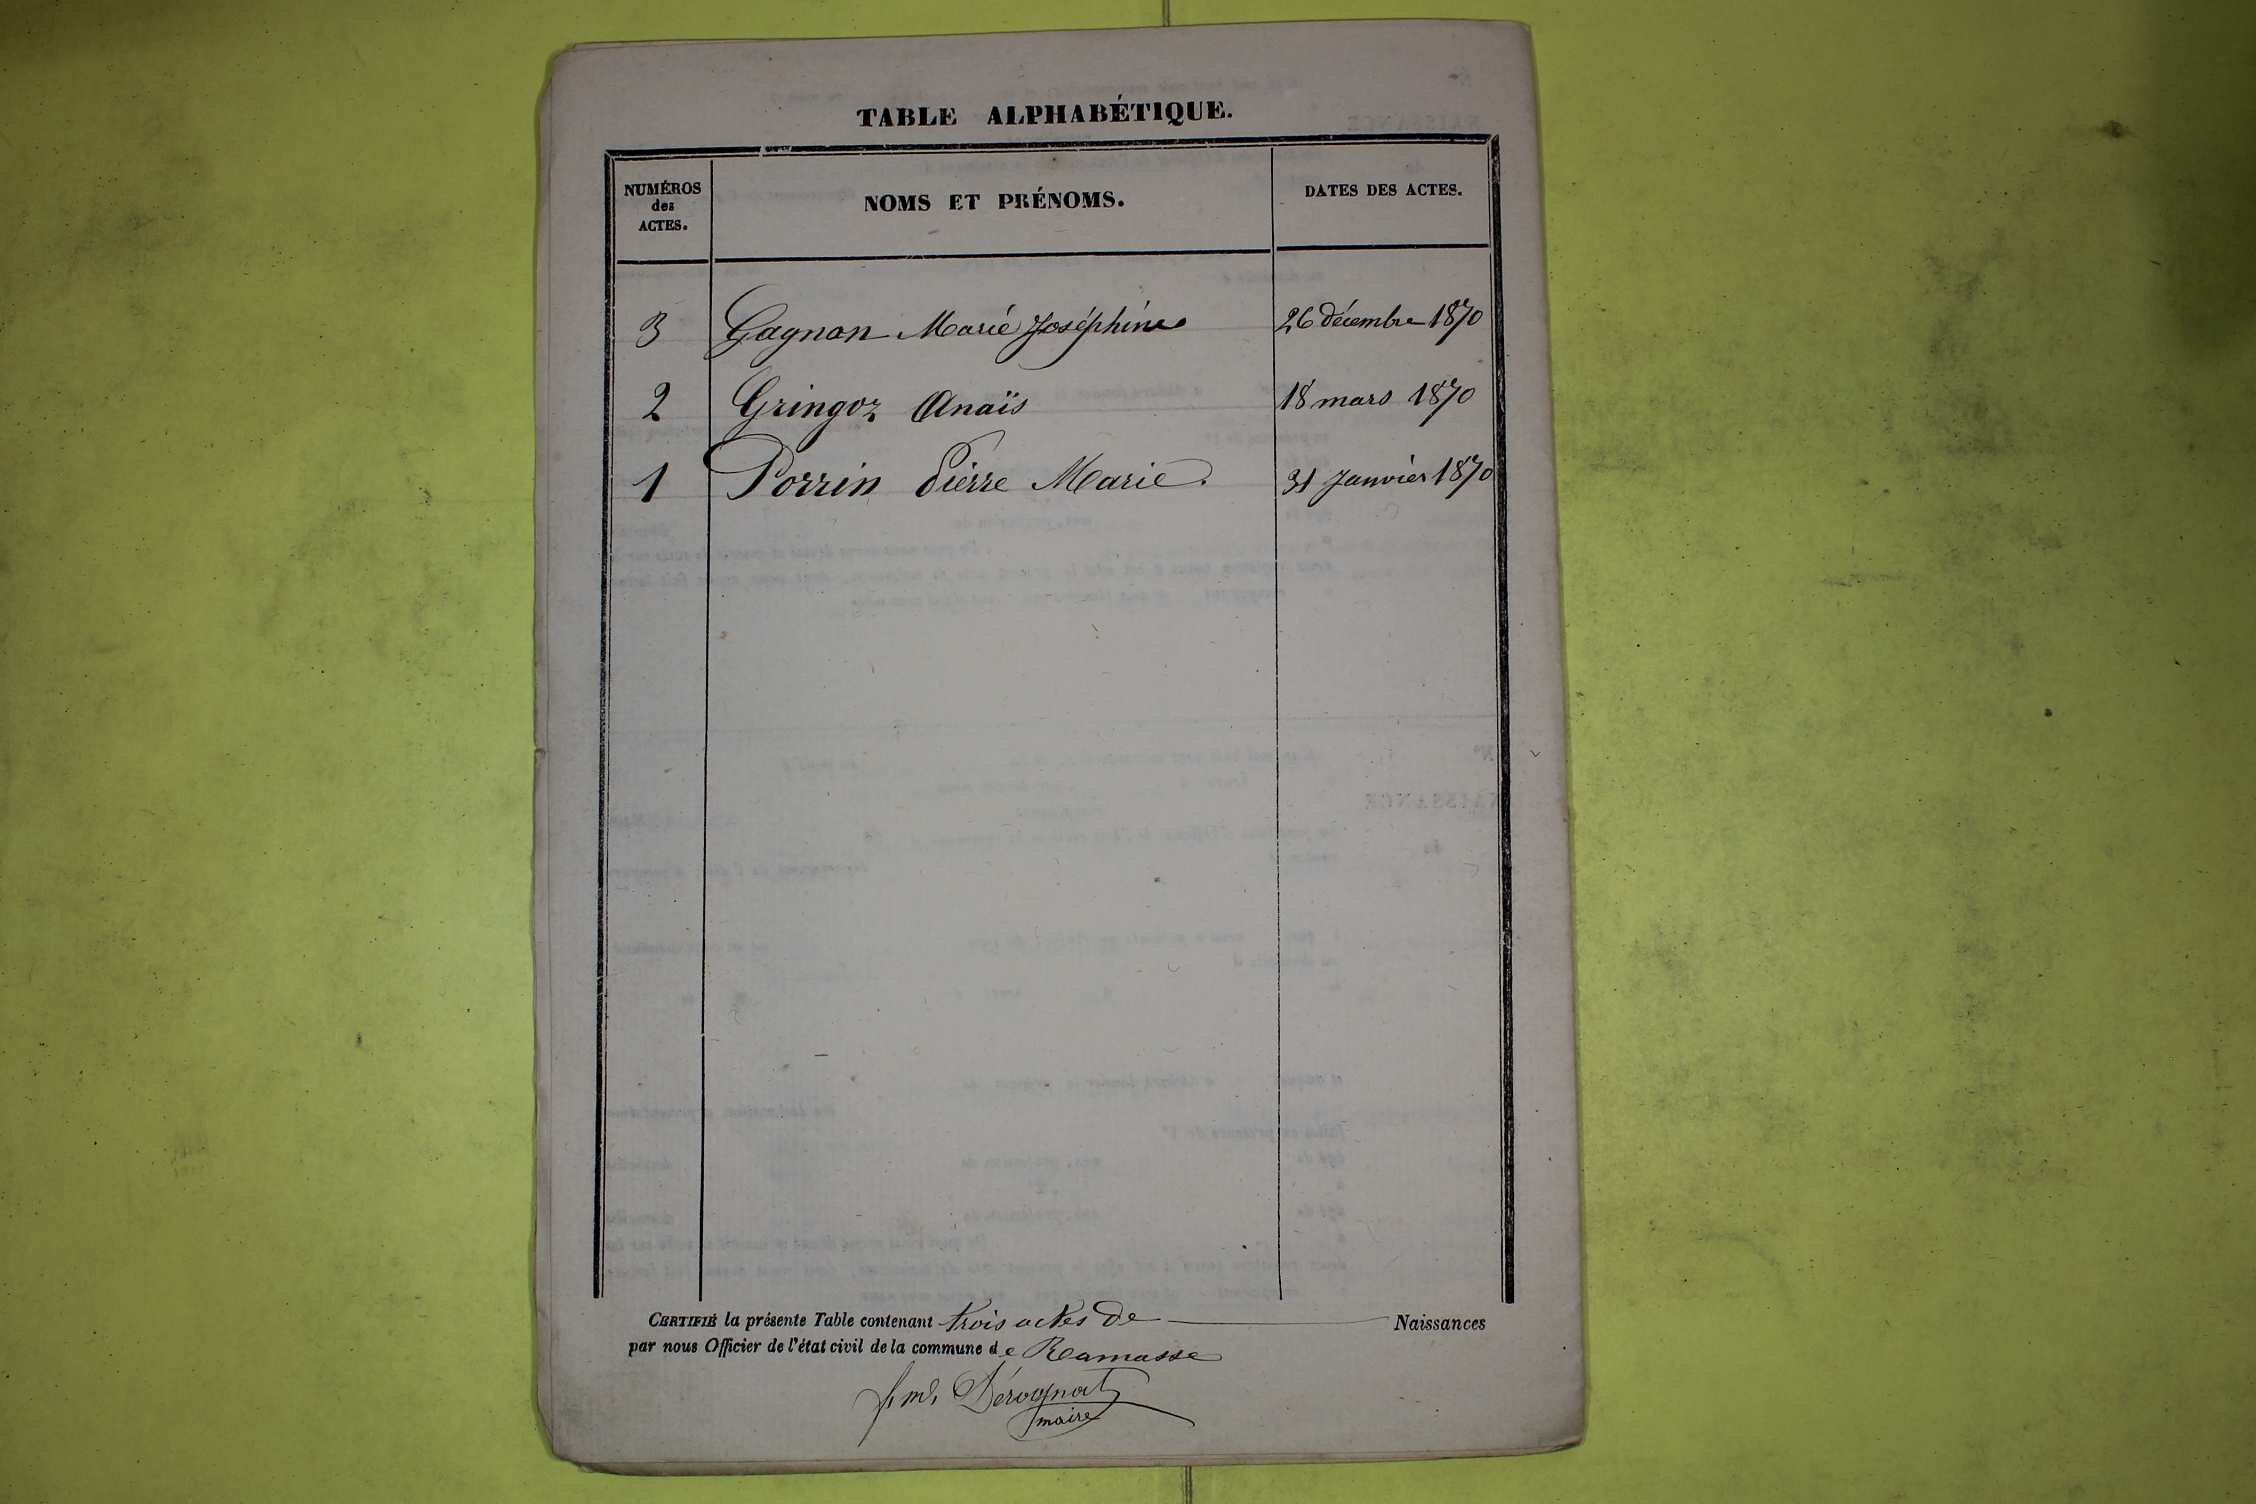 TABLE ALPHABÉTIQUE.
NUMÉROS
des
ACTES.
NOMS ET PRÉNOMS.
DATES DES ACTES.
3 Gagnon Marie Joséphine 26 décembre 1870
2 Gringoz Anaïs 18 mars 1870
1 Porrin Pierre Marie. 31 Janvier 1870
CERTIFIÉ la présente Table contenant trois actes de Naissances
par nous Officier de l'état civil de la commune de Ramasse
maire